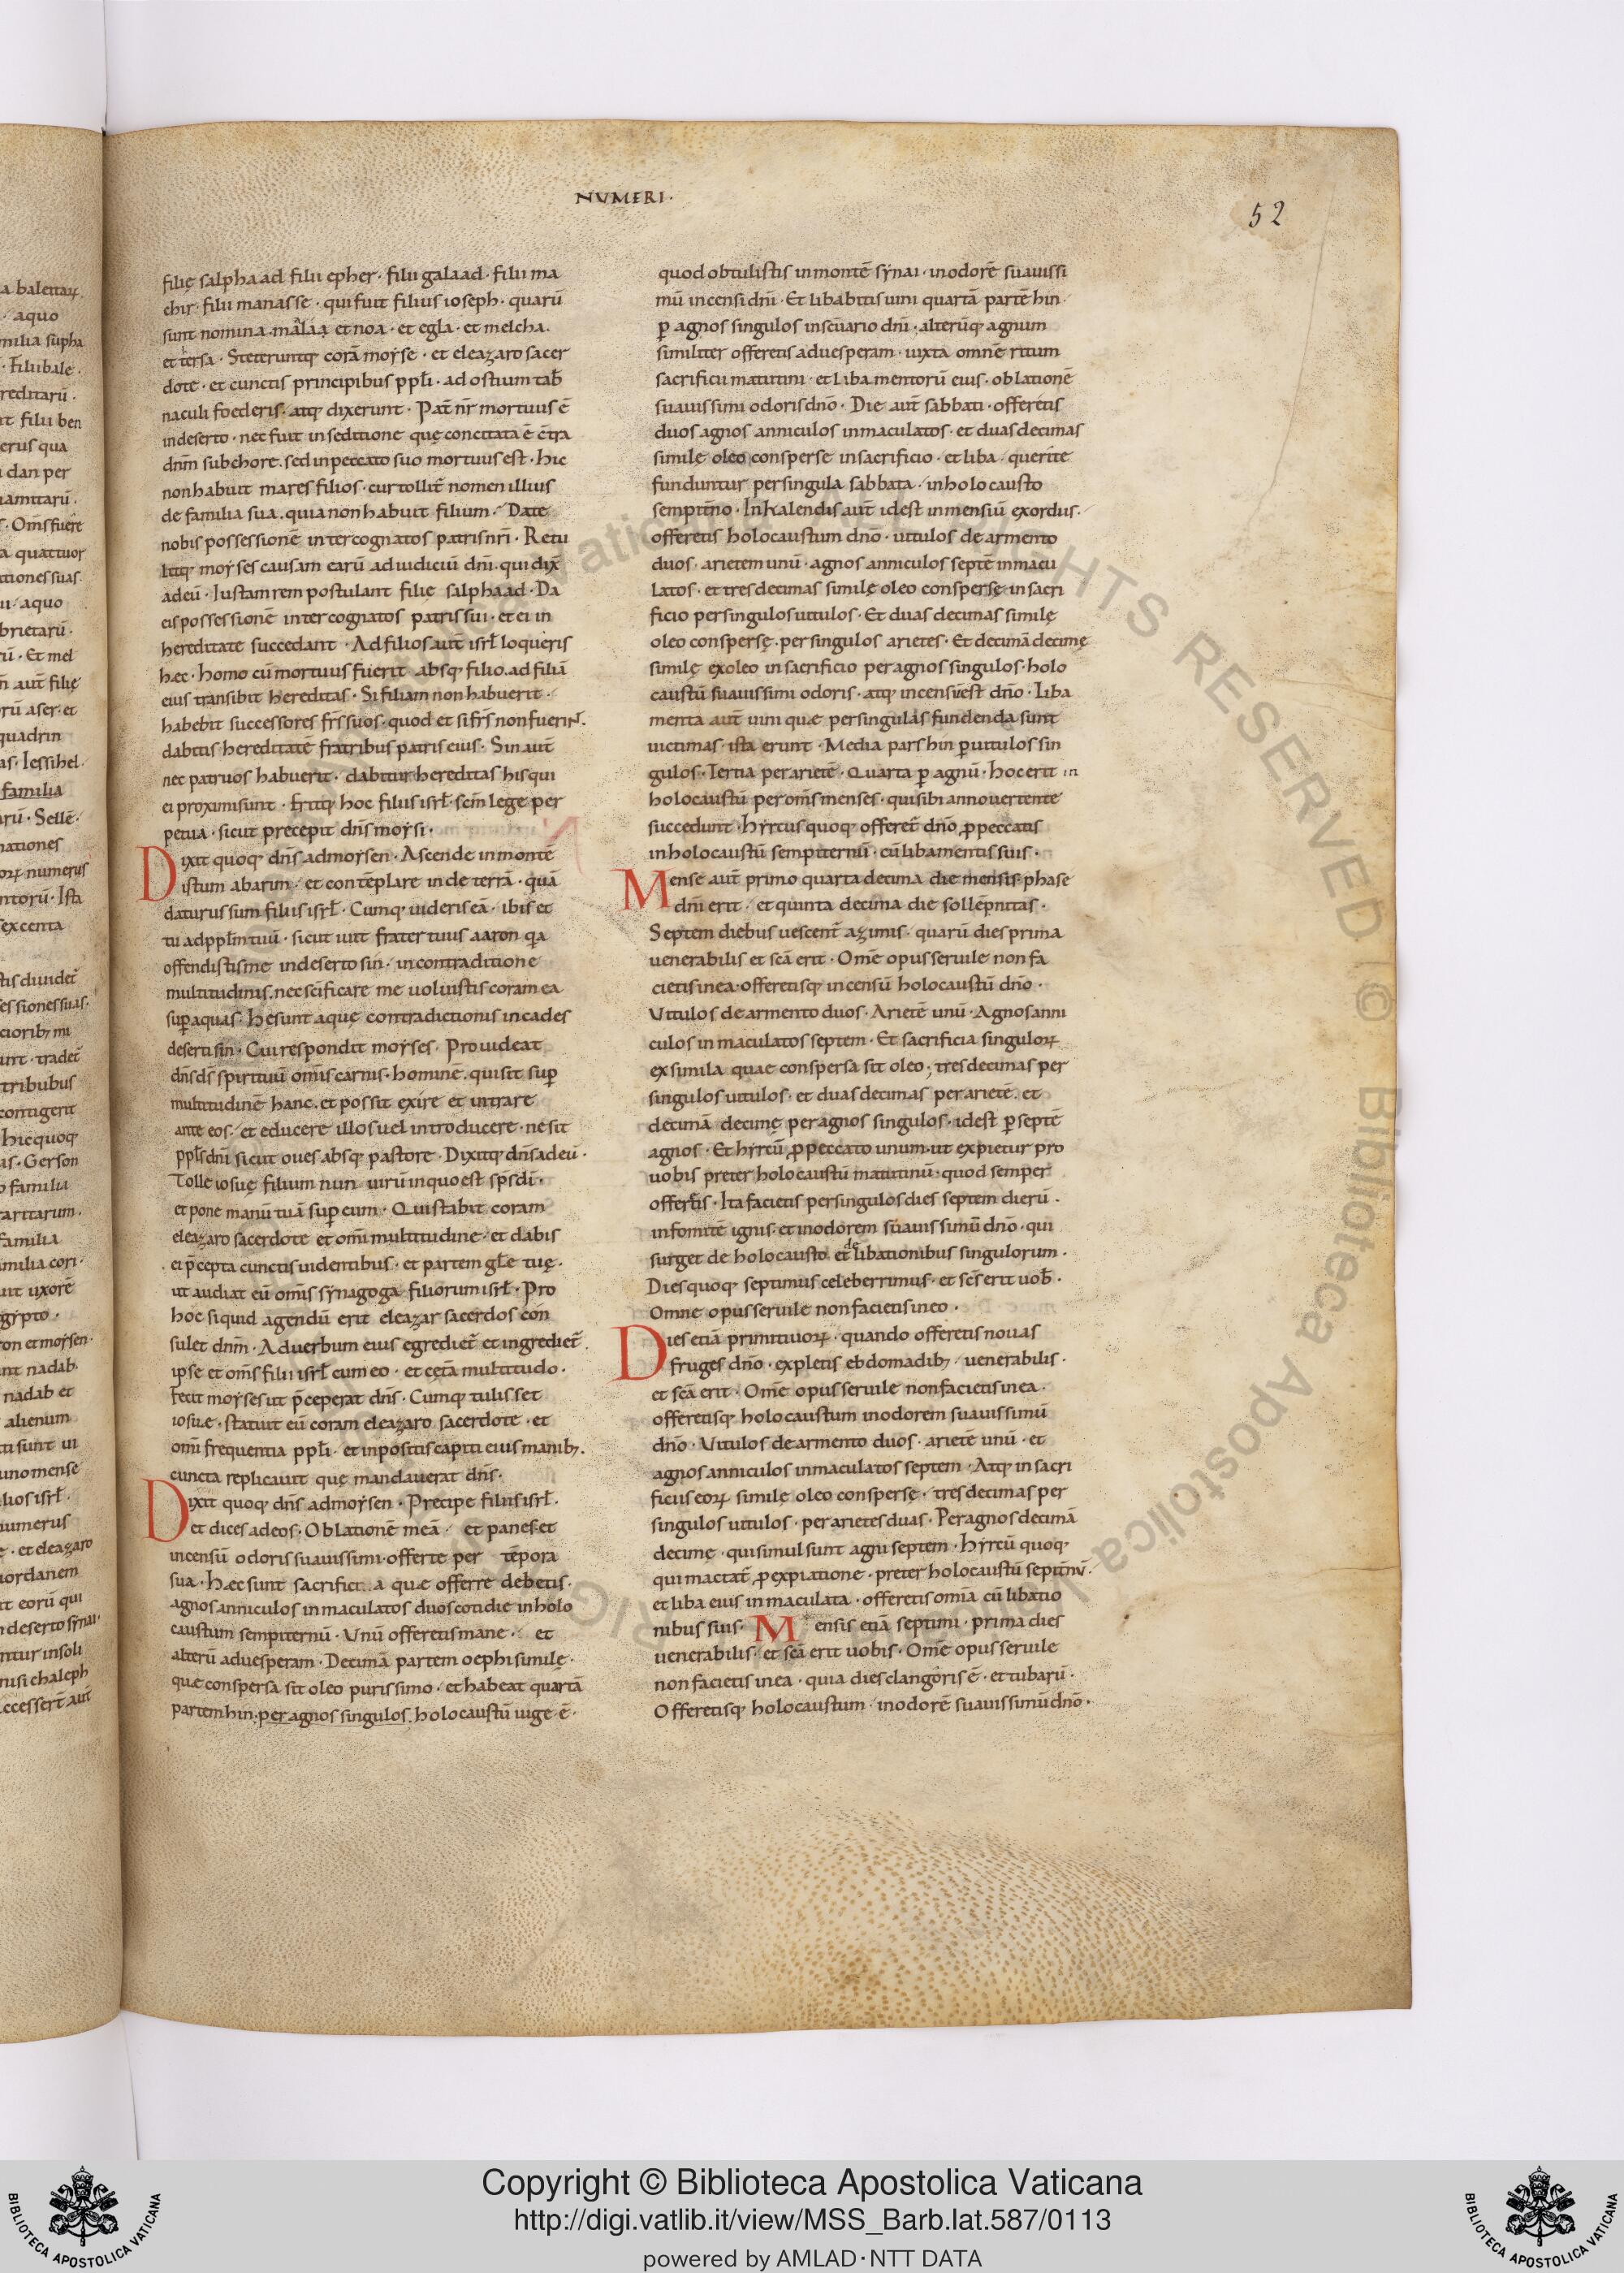 NUMERI·
52
filię salphaad filii epher· filii galaad· filii ma
chir· filii manasse· qui fuit filius ioseph· quarū
sunt nomina· maalā et noa· et egla· et melcha·
et tersa· Steteruntq; corā moyse· et eleazaro sacer
dote· et cunctis principibus ppłi· ad ostium tab̄
naculi foederis· atq; dixerunt· Pat̄ nr̄ mortuus ē
in deserto· nec fuit in seditione quę concitata ē c̄tra
dn̄m sub chore· sed in peccato suo mortuus est· hic
non habuit mares filios· cur tollit̄ nomen illius
de familia sua· quia non habuit filium· Date
nobis possessionē inter cognatos patris nr̄i· Retu
litq; moyses causam earū ad iudiciū dn̄i· qui dix̄
ad eū· Iustam rem postulant filię salphaad· Da
eis possessionē inter cognatos patris sui· et ei in
hereditate succedant· Ad filios aut̄ isrł loqueris
hęc· Homo cū mortuus fuerit absq; filio· ad filiā
eius transibit hereditas· Si filiam non habuerit·
habebit successores fr̄s suos· quod et si fr̄s non fuerin̄t·
dabitis hereditatē fratribus patris eius· Sin aut̄
nec patruos habuerit· dabitur hereditas his qui
ei proximi sunt· Eritq; hoc filiis isrł· scīm lege per
petua· sicut precepit dn̄s moysi·
Dixit quoq; dn̄s ad moysen· Ascende in montē
istum abarim· et contēplare inde terrā· quā
daturus sum filiis isrł· Cumq; uideris eā· ibis et
tu ad ppłm tuū· sicut iuit frater tuus aaron qa
offendistis me in deserto sin· in contraditione
multitudinis· nec scīficare me uoluistis coram ea
sup aquas· Hę sunt aquę contradictionis in cades
deserti sin· Cui respondit moyses· Prouideat
dn̄s ds̄ spirituū om̄is carnis· hominē· qui sit sup
multitudinē hanc· et possit exire et intrare
ante eos· et educere illos uel introducere· ne sit
ppłs dn̄i sicut oues absq; pastore· Dixitq; dn̄s ad eū·
Tolle iosuę filium nun· uirū in quo est sp̄s di·
et pone manū tuā sup eum· Qui stabit coram
eleazaro sacerdote et om̄i multitudine· et dabis
ei p̄cepta cunctis uidentibus· et partem głę tuę·
ut audiat eū om̄is synagoga filiorum isrł· Pro
hoc si quid agendū erit eleazar sacerdos con
sulet dn̄m· Ad uerbum eius egrediet̄ et ingrediet̄·
ipse et om̄s filii isrł cum eo· et cęt̄a multitudo·
Fecit moyses ut p̄ceperat dn̄s· Cumq; tulisset
iosue· statuit eū coram eleazaro sacerdote· et
om̄i frequentia ppłi· et inpositis capiti eius manib;·
cuncta replicauit quę mandauerat dn̄s·
Dixit quoq; dn̄s ad moysen· Precipe filiis isrł·
et dices ad eos· Oblationē meā· et panes· et
incensū odoris suauissimi· offerte per tēpora
sua· Hæc sunt sacrifici a quæ offerre debetis·
agnos anniculos inmaculatos duos cotidie in holo
caustum sempiternū· Unū offeretis mane· et
alterū ad uesperam· Decimā partem oephi similę·
quæ conspersa sit oleo purissimo· et habeat quartā
partem hin· per agnos singulos· holocaustū iuge· ē·
quod obtulistis in montē synai· in odorē suauissi
mū incensi dn̄i· Et libabitis uini quartā partē hin·
p agnos singulos in scūario dn̄i· alterūq; agnum
similiter offeretis ad uesperam· iuxta omnē ritum
sacrificii matutini· et libamentorū eius· oblationē
suauissimi odoris dn̄o· Die aut̄ sabbati· offeretis
duos agnos anniculos inmaculatos· et duas decimas
similę oleo consperse in sacrificio· et liba· que rite
funduntur per singula sabbata· in holocausto
sempit̄no· In kalendis aut̄ id est in mensiū exordiis·
offeretis holocaustum dn̄o· uitulos de armento
duos· arietem unū· agnos anniculos septē inmacu
latos· et tres decimas similę oleo consperse in sacri
ficio per singulos uitulos· Et duas decimas similę
oleo conspersę· per singulos arietes· Et decimā decimę
similę ex oleo in sacrificio per agnos singulos· holo
caustū suauissimi odoris· atq; incensū est dn̄o· Liba
menta aut̄ uini quæ per singulas fundenda sunt
uictimas· ista erunt· Media pars hin p uitulos sin
gulos· Tertia per arietē· Quarta p agnū· hoc erit in
holocaustū per om̄s menses· qui sibi anno uertente
succedunt· Hyrcus quoq; offeret̄ dn̄o ꝓ peccatis
in holocaustū sempiternū· cū libamentis suis·
Mense aut̄ primo quarta decima die mensis· phase
dn̄i erit· et quinta decima die sollēpnitas·
Septem diebus uescent̄ azimis· quarū dies prima
uenerabilis et scā erit· Om̄e opus seruile non fa
cietis in ea· offeretisq; incensū holocaustū dn̄o·
Vitulos de armento duos· Arietē unū· Agnos anni
culos inmaculatos septem· Et sacrificia singuloꝝ
ex simila quae conspersa sit oleo; tres decimas per
singulos uitulos· et duas decimas per arietē· et
decimā decimę per agnos singulos· id est p septē
agnos· Et hyrcū ꝓ peccato unum· ut expietur pro
uobis preter holocaustū matutinū· quod semper
offertis· Ita facietis per singulos dies septem dierū·
in fomitē ignis· et in odorem suauissimū dn̄o· qui
surget de holocausto· et de libationibus singulorum·
Dies quoq; septimus celeberrimus· et scs̄ erit uob̄·
Omne opus seruile non facietis in eo·
Dies etiā primitiuoꝝ· quando offeretis nouas
fruges dn̄o· expletis ebdomadib; uenerabilis·
et scā erit· Om̄e opus seruile non facietis in ea·
offeretisq; holocaustum in odorem suauissimū
dn̄o· Vitulos de armento duos· arietē unū· et
agnos anniculos inmaculatos septem· Atq; in sacri
ficiis eoꝝ similę oleo conspersę· tres decimas per
singulos uitulos· per arietes duas· Per agnos decimā
decimę· qui simul sunt agni septem· Hyrcū quoq;
qui mactat̄ ꝓ expiatione· preter holocaustū sepit̄nū·
et liba eius inmaculata· offeretis om̄ia cū libatio
nibus suis· Mensis etiā septimi· prima dies
uenerabilis· et scā erit uobis· Om̄e opus seruile
non facietis in ea· quia dies clangoris ē· et tubarū·
Offeretisq; holocaustum· in odorē suauissimū dn̄o·
Copyright © Biblioteca Apostolica Vaticana
http://digi.vatlib.it/view/MSS_Barb.lat.587/0113
powered by AMLAD·NTT DATA